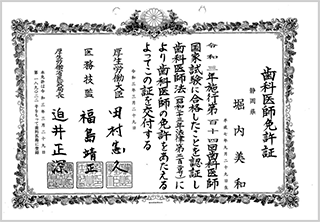 歯科医師免許証
静岡県
堀内美和
平成七年九月二十九日生
令和三年施行第百十四回歯科医師
国家試験に合格したことを認証し
歯科医師法(昭和二十三年法律第二百二号)に
より歯科医師の免許をあたえる
よってこの証を交付する
令和三年三月二十九日
厚生労働大臣 田村憲久
医務技監 福島靖正
厚生労働省医政局長 迫井正深